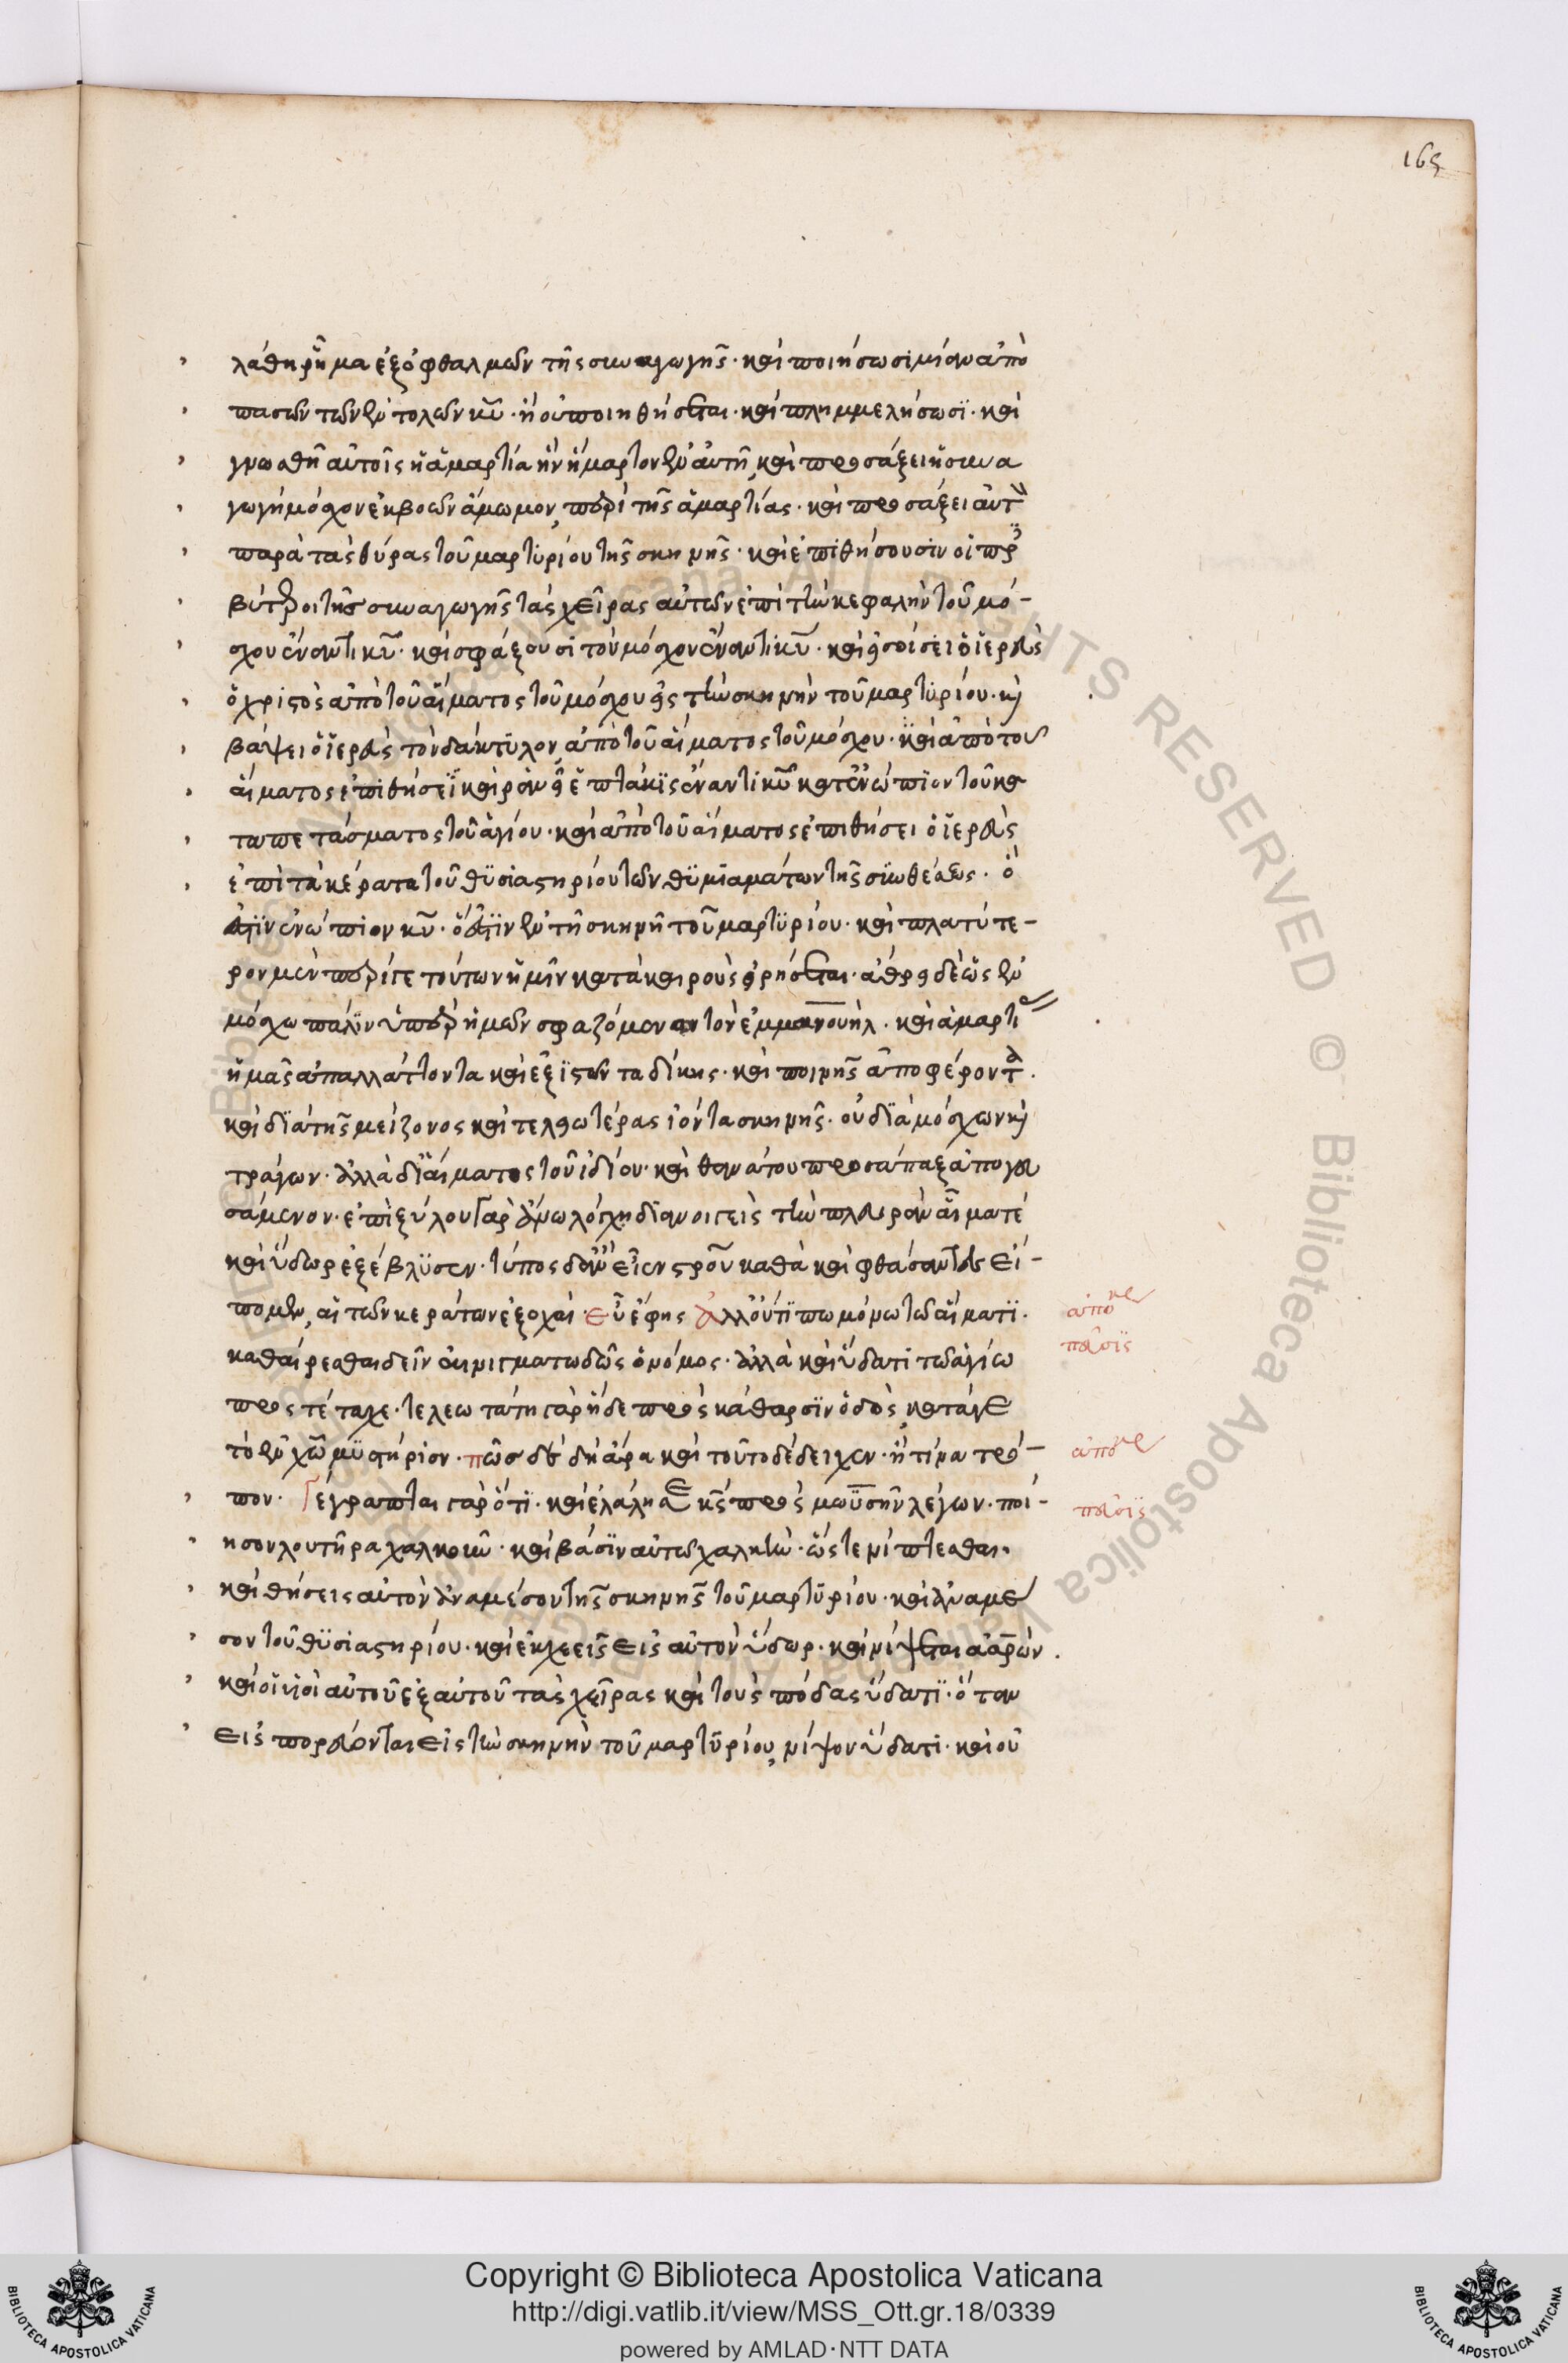 165
λάθη ῥῆμα ἐξ ὀφθαλμῶν τῆς συναγωγῆς· καὶ ποιήσωσι μίαν ἀπὸ
πασῶν τῶν ἐντολῶν κυ· ἣ οὐ ποιηθήσεται· καὶ πλημμελήσωσϊ· καὶ
γνωσθῆ αὐτοῖς ἡ ἁμαρτία ἣν ἥμαρτον ἐν αὐτῆ, καὶ προσάξει ἡ συνα
γωγὴ μόσχον ἐκ βοῶν ἄμωμον, περὶ τῆς ἁμαρτίας· καὶ προσάξει αὐτὸν
παρὰ τὰς θύρας τοῦ μαρτυρίου τῆς σκηνῆς· καὶ ἐπιθήσουσιν οἱ πρεσ
βύτεροι τῆς συναγωγῆς τὰς χεῖρας αὐτῶν ἐπὶ τὴν κεφαλὴν τοῦ μό-
σχου ἔναντι κυ· καὶ σφάξουσι τὸν μόσχον ἔναντι κυ· καὶ εἰσοίσει ὁ ἱερεὺς
ὁ χριστὸς ἀπὸ τοῦ αἵματος τοῦ μόσχου εἰς τὴν σκηνὴν τοῦ μαρτυρίου· καὶ
βάψει ὁ ἱερεὺς τὸν δάκτυλον, ἀπὸ τοῦ αἵματος τοῦ μόσχου· καὶ ἀπὸ τοῦ
αἵματος ἐπιθήσεϊ καὶ ῥανεῖ ἑπτάκϊς ἔναντι κυ κατενώπϊον τοῦ κα
ταπετάσματος τοῦ ἁγίου· καὶ ἀπὸ τοῦ αἵματος ἐπιθήσει ὁ ἱερεὺς
ἐπὶ τὰ κέρατα τοῦ θϋσϊαστηρίου τῶν θϋμϊαμάτων τῆς συνθέσεως· ὅ
ἐστϊν ἐνώπιον κυ· ὅ ἐστϊν ἐν τῆ σκηνῆ τοῦ μαρτϋρίου· καὶ πλατύτε-
ρον μὲν περί τε τούτων ἡμῖν κατὰ καιροὺς εἰρήσεται· ἄθρει δὲ ὡς ἐν
μόσχω πάλϊν ὑπὲρ ἡμῶν σφαζόμενον τὸν ἐμμανουήλ· καὶ ἁμαρτίας
ἡμᾶς ἀπαλλάττοντα καὶ ἐξϊστῶντα δίκης· καὶ ποινῆς ἀποφέροντα.
καὶ δϊὰ τῆς μείζονος καὶ τελεωτέρας ἰόντα σκηνῆς· οὐ δϊὰ μόσχων καὶ
τράγων· ἀλλὰ δϊ αἵματος τοῦ ἰδίου· καὶ θανάτου προσάπαξ ἀπογευ
σάμενον· ἐπὶ ξύλου γὰρ ἄνω λόγχη δϊανοιγεὶς τὴν πλευρὰν αἷμά τε
καὶ ὕδωρ ἐξέβλϋσεν· τύπος δ' ἂν εἶεν σταυροῦ καθὰ καὶ φθάσαντες εἴ-
πομεν, αἱ τῶν κεράτων ἐξοχαί· εὖ ἔφης ἀλλ' οὔτϊ πω μόνω τῶ αἵματϊ.
καθαίρεσθαι δεῖν αἰνιγματωδῶς ὁ νόμος· ἀλλὰ καὶ ὕδατι τῶ ἁγίω
προστέταχε· τελεωτάτη γὰρ ἥδε πρὸς κάθαρσϊν ὁδὸς, κατάγε
τὸ ἐν χω μϋστήριον· πῶς δὲ δὴ ἄρα καὶ τοῦτο δέδειχεν· ἢ τίνα τρό-
πον· Γέγραπται γὰρ ὅτϊ· καὶ ἐλάλησε κς πρὸς μωϋσῆν λέγων· ποί-
ησον λουτῆρα χαλκοῦν· καὶ βάσϊν αὐτῶ χαλκῆν· ὥστε νίπτεσθαι·
καὶ θήσεις αὐτὸν ἀναμέσον τῆς σκηνῆς τοῦ μαρτϋρίου· καὶ ἀναμέ
σον τοῦ θϋσϊαστηρίου· καὶ ἐκχεεῖς εἰς αὐτὸν ὕδωρ· καὶ νίψεται ἀαρὼν.
καὶ οἱ υἱοὶ αὐτοῦ ἐξ αὐτοῦ τὰς χεῖρας καὶ τοὺς πόδας ὕδατϊ· ὅταν
εἰσπορεύονται εἰς τὴν σκηνὴν τοῦ μαρτϋρίου, νίψον ὕδατι· καὶ οὐ
Copyright © Biblioteca Apostolica Vaticana
http://digi.vatlib.it/view/MSS_Ott.gr.18/0339
powered by AMLAD·NTT DATA